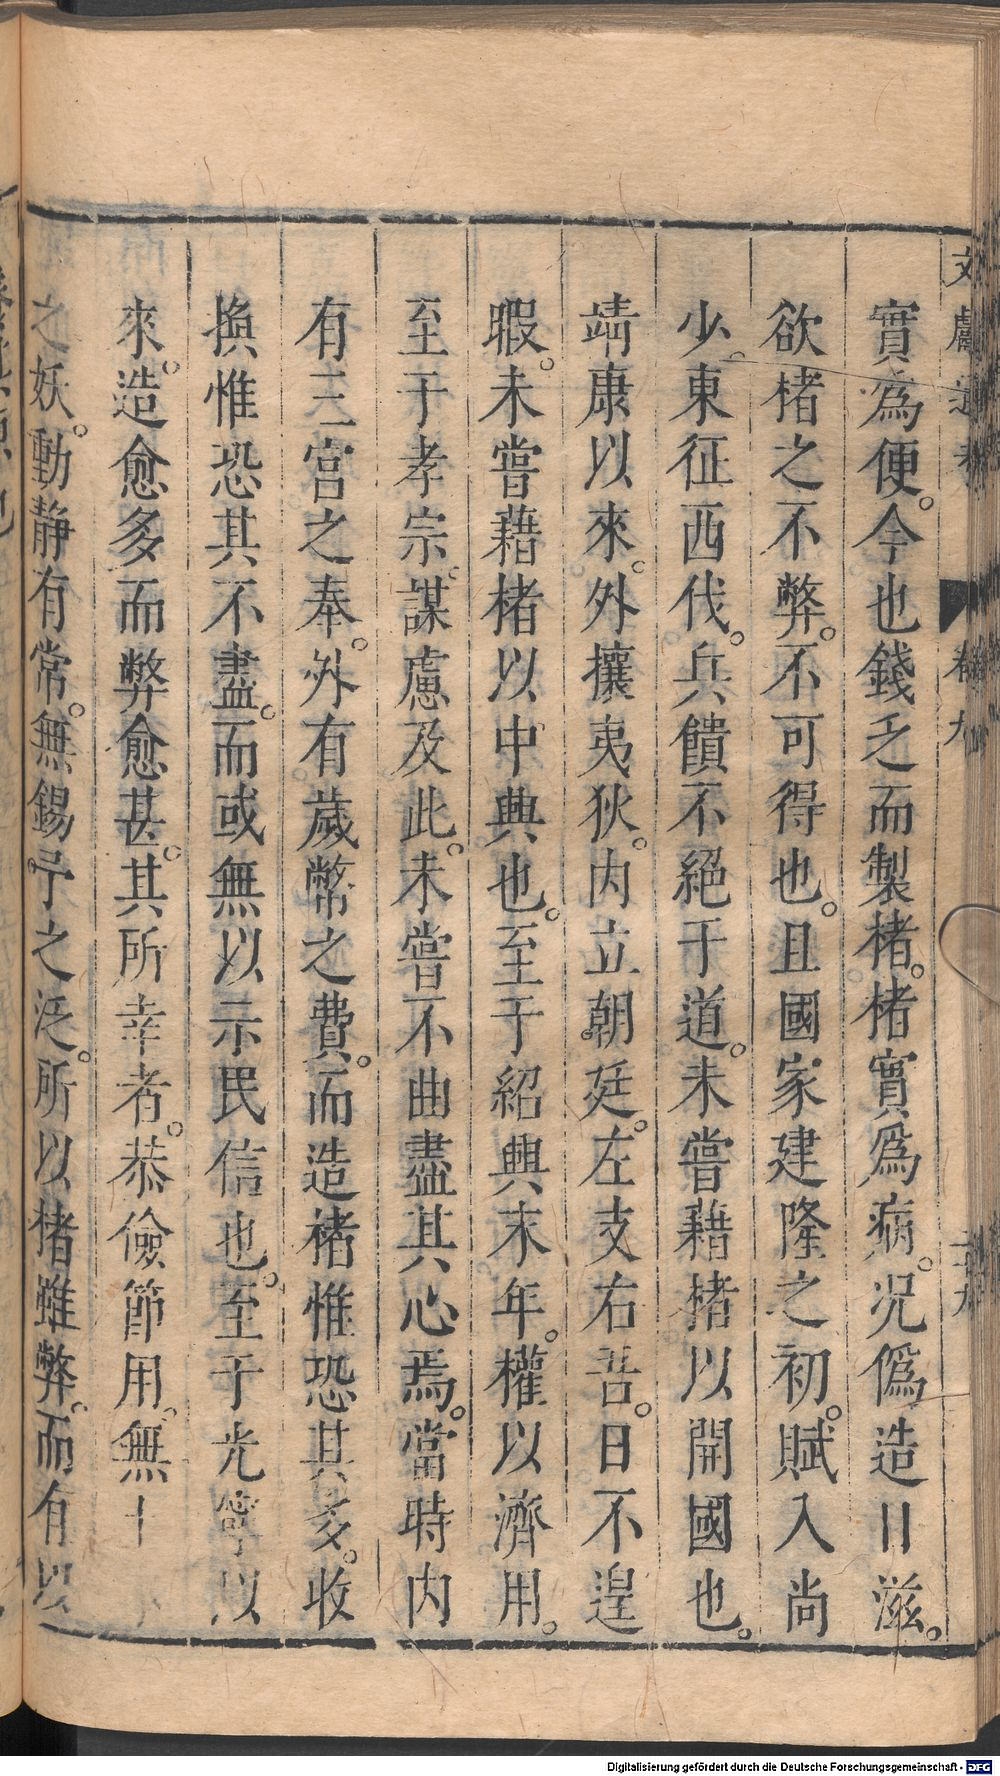 文獻通考 卷九
實爲便。今也錢乏而製楮。楮實爲病。况僞造日滋。
欲楮之不弊。不可得也。且國家建隆之初。賦入尚
少。東征西伐。兵饋不絕于道。未嘗藉楮以開國也。
靖康以來。外攘夷狄。内立朝廷。左支右吾。日不遑
暇。未嘗藉楮以中興也。至于紹興末年。權以濟用。
至于孝宗。謀慮及此。未嘗不曲盡其心焉。當時内
有三宮之奉。外有歲幣之費。而造楮惟恐其多。收
換惟恐其不盡。而或無以示民信也。至于光寧以
來。造愈多而弊愈甚。其所幸者。恭儉節用。無
之妖。動静有常。無錫予之泛。所以楮雖弊。而有以
Digitalisierung gefördert durch die Deutsche Forschungsgemeinschaft - DFG